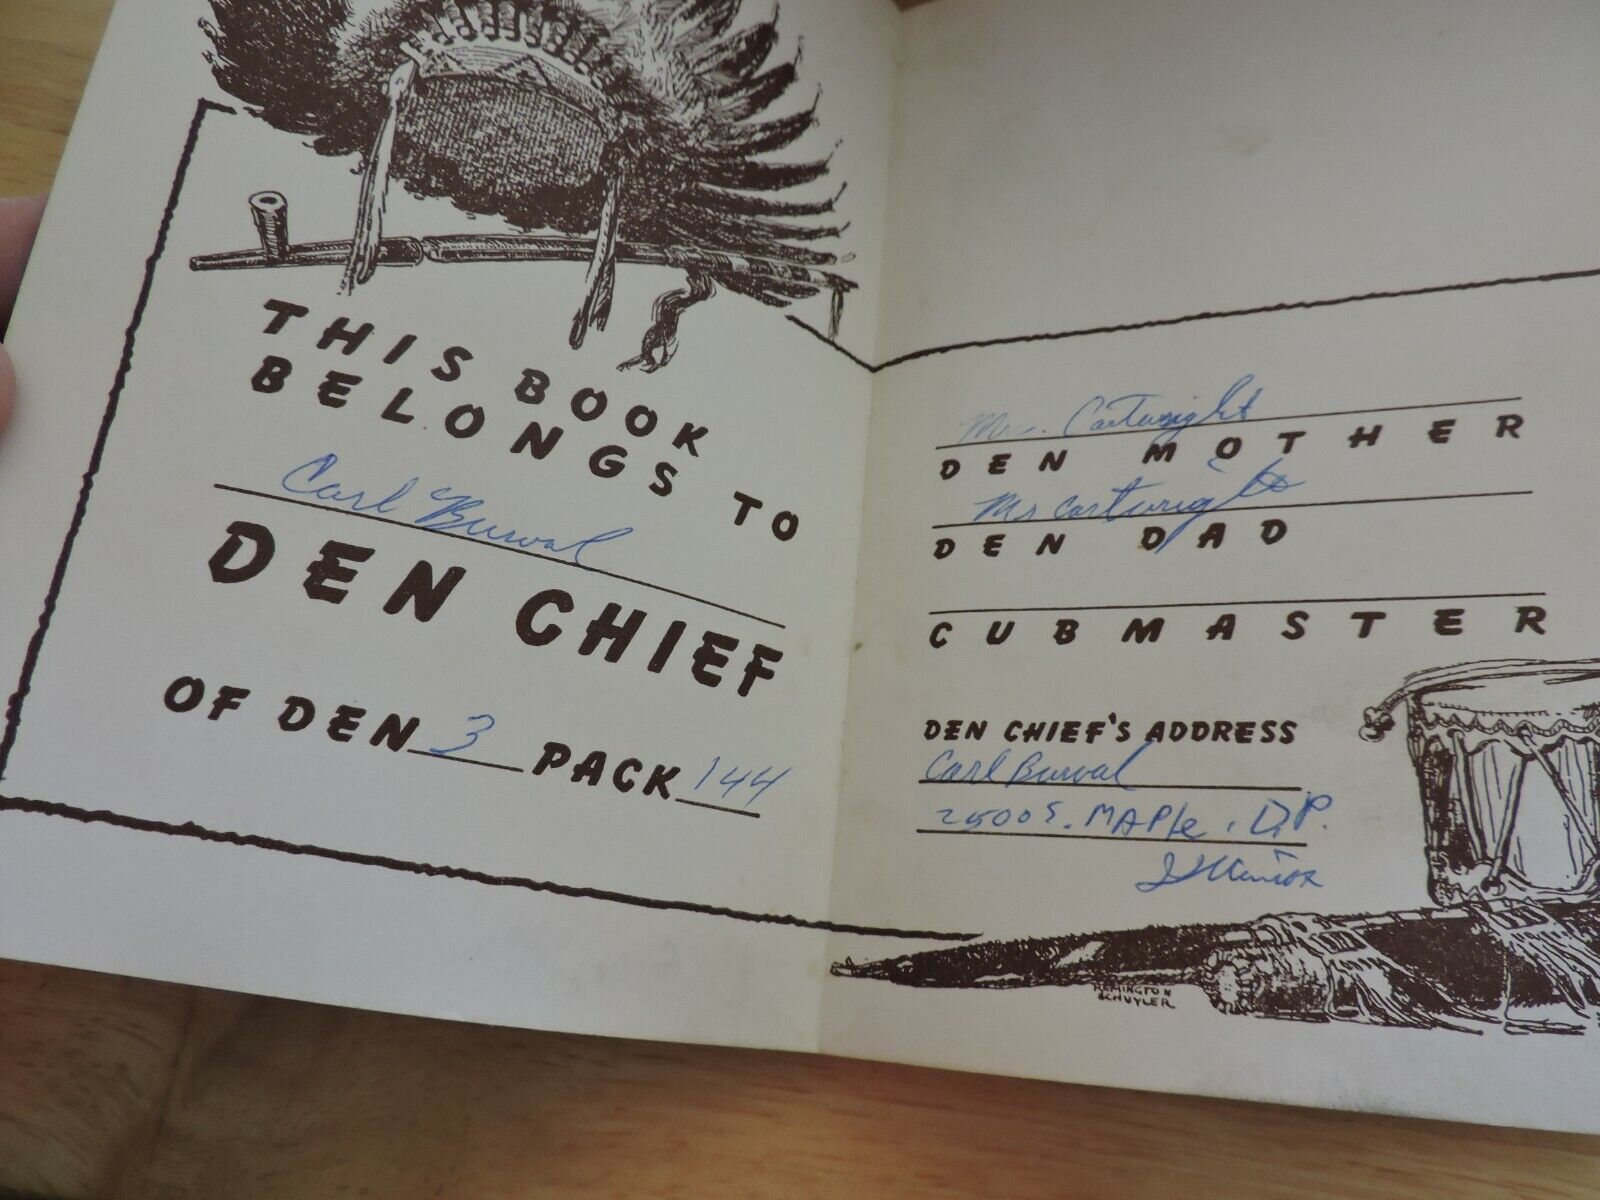 THIS BOOK
BELONGS TO
Carl Burval
DEN CHIEF
OF DEN 3 PACK 144
Mrs. Cartwright
DEN MOTHER
Mr Cartwright
DEN DAD
CUBMASTER
DEN CHIEF'S ADDRESS
Carl Burval
2500 S. MAPle. D.P.
Illinios
REMINGTON
SCHUYLER